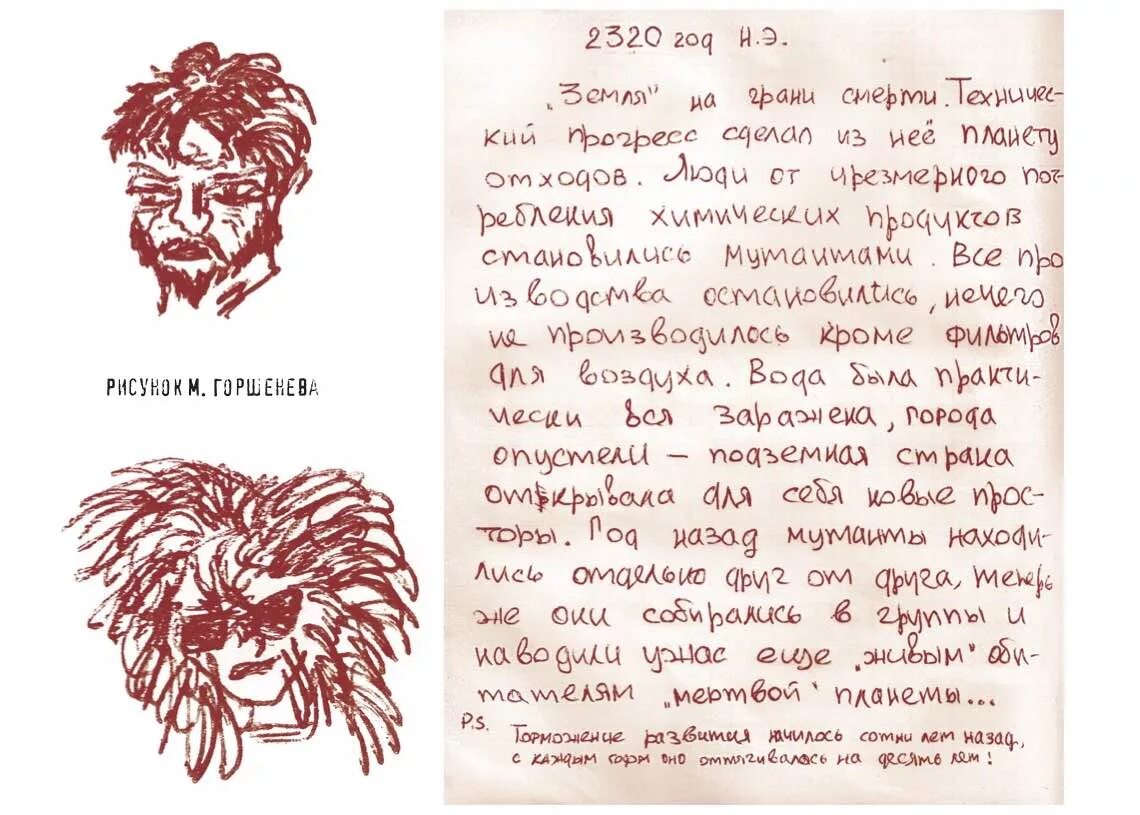 РИСУНОК М. ГОРШЕНЕВА
2320 год Н.Э.
„Земля" на грани смерти. Техничес-
кий прогресс сделал из неё планету
отходов. Люди от чрезмерного пот-
ребления химических продуктов
становились мутантами. Все про
изводства остановились, ненего
не производилось кроме фильтров
для воздуха. Вода была практи-
чески вся заражена, города
опустели – подземная страна
открывала для себя новые прос-
торы. Год назад мутанты находи-
лись отдельно друг от друга, теперь
же они собирались в группы и
наводили ужас еще „живым" оби-
тателям „мертвой" планеты...
P.S. Торможение развития началось сотни лет назад,
с каждым годом оно оттягивалось на десять лет!